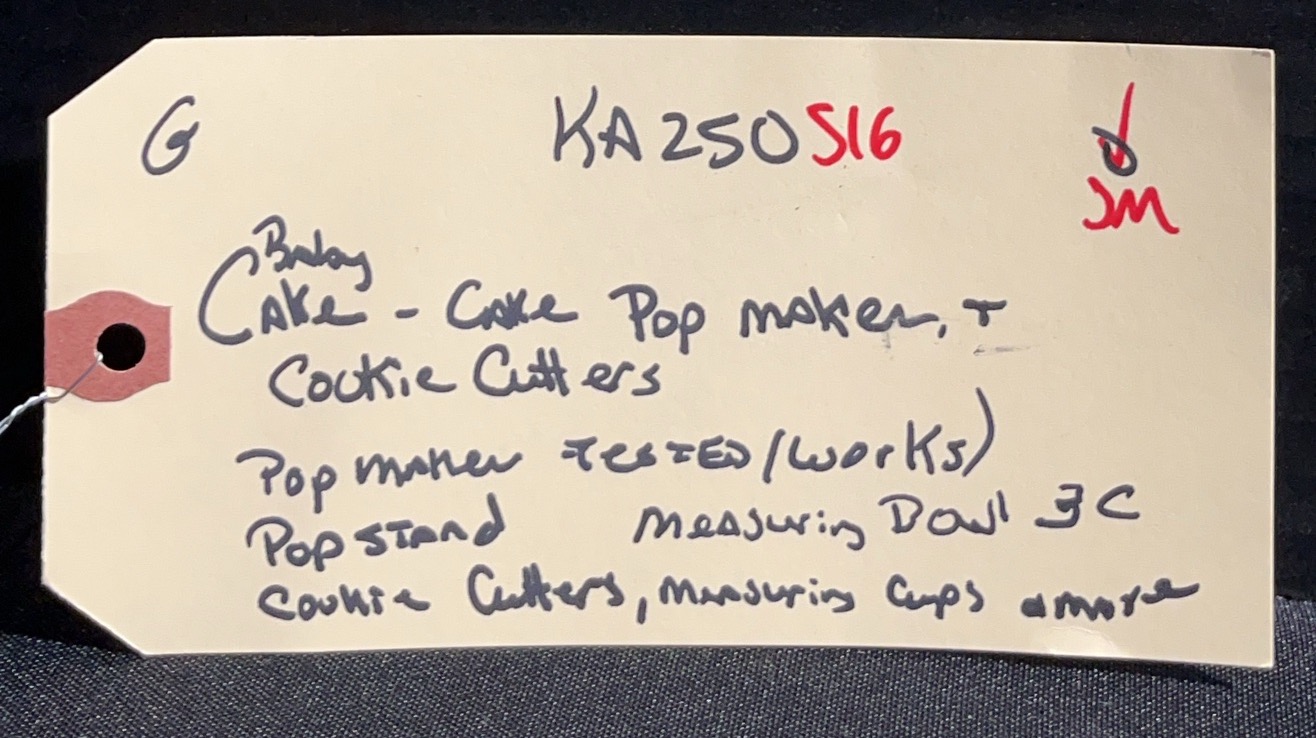 G KA250 S16
JM
Baby
Cake - Cake Pop maker, +
Cookie Cutters
Pop maker TESTED/works)
Pop STAND Measuring Bowl 3 C
Cookie Cutters, Measuring Cups & more